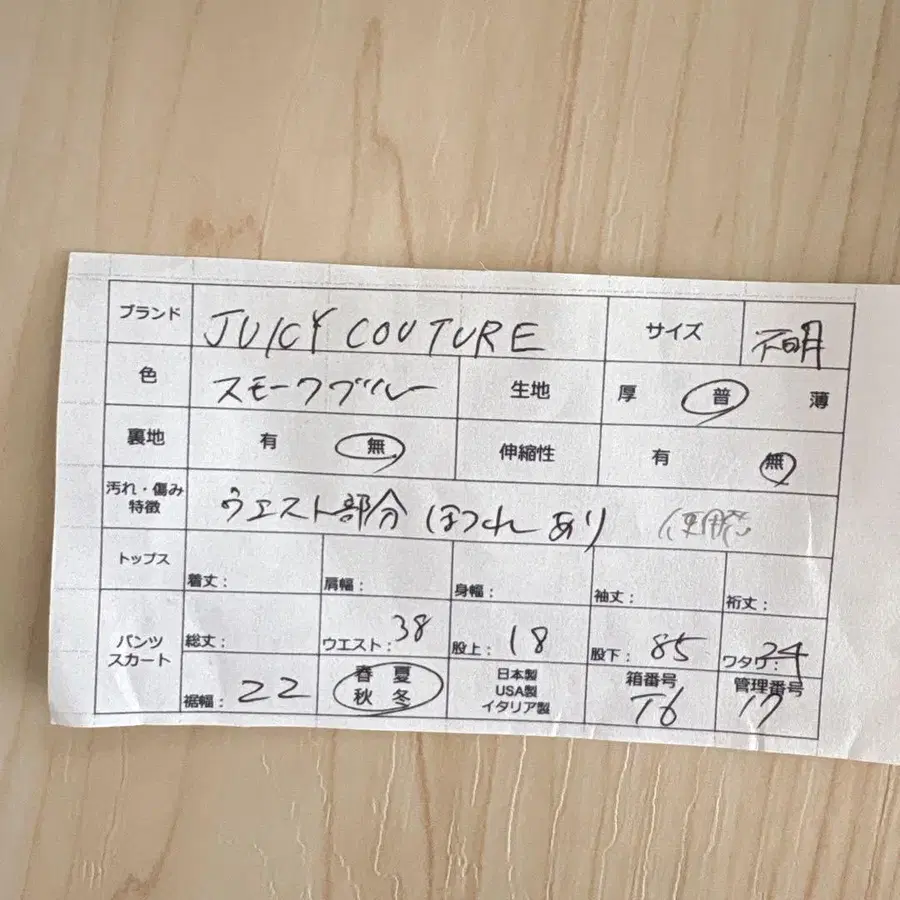 ブランド JUICY COUTURE サイズ 不明
色 スモークブルー 生地 厚 普 薄
裏地 有 無 伸縮性 有 無
汚れ・傷み
特徴 ウエスト部分 ほつれあり 使用感
トップス 着丈: 肩幅: 身幅: 袖丈: 裄丈:
パンツ
スカート 総丈: ウエスト:38 股上:18 股下:85 ワタリ:24
裾幅:22 春 夏
秋 冬
日本製
USA製
イタリア製
箱番号
T6
管理番号
17